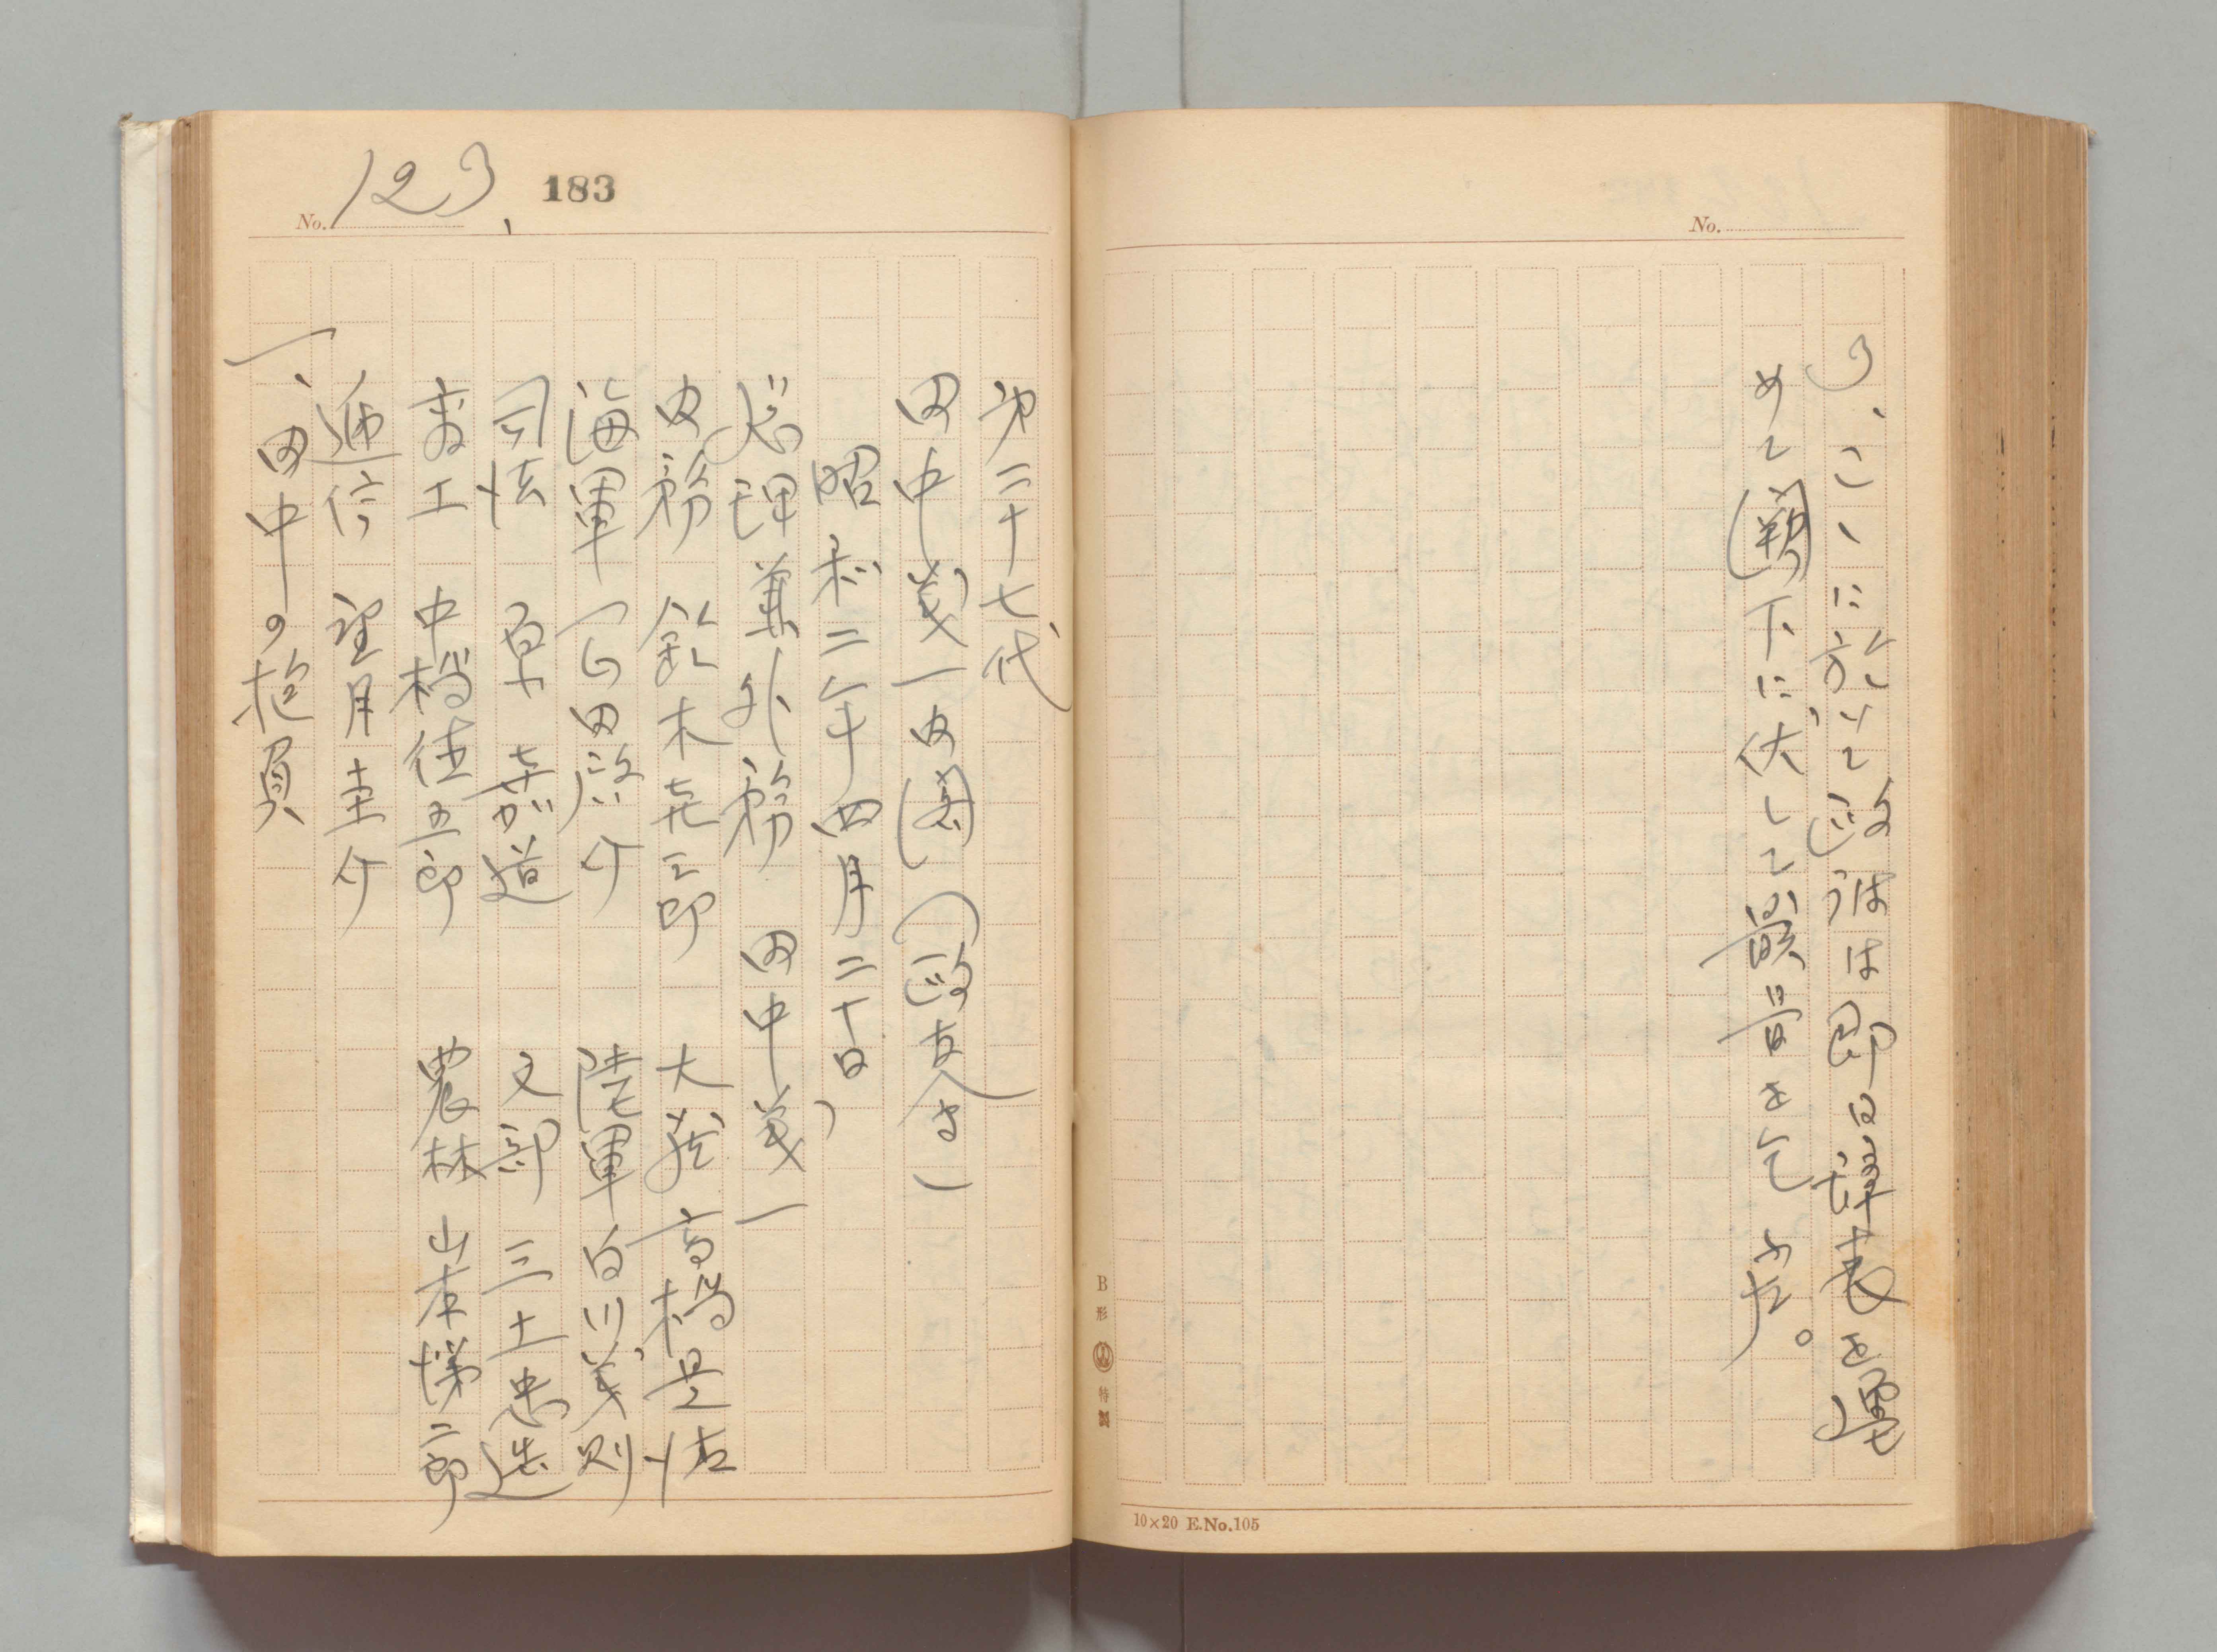 No.
り、こゝに於いて政府は即日辞表を纏
めて闕下に伏して
旨を乞ふた。
10×20 E.No.105
B形 特製
No. 123、
183
第二十七代、
田中義一内閣(政友会)
昭和二年四月二十日、
総理兼外務 田中義一
内務 鈴木喜三郎 大蔵 高橋是清
海軍 岡田啓介 陸軍 白川義則
司法 原 嘉道 文部 三土忠造
商工 中橋徳五郎 農林 山本悌二郎
逓信 望月圭介
一、田中の抱負